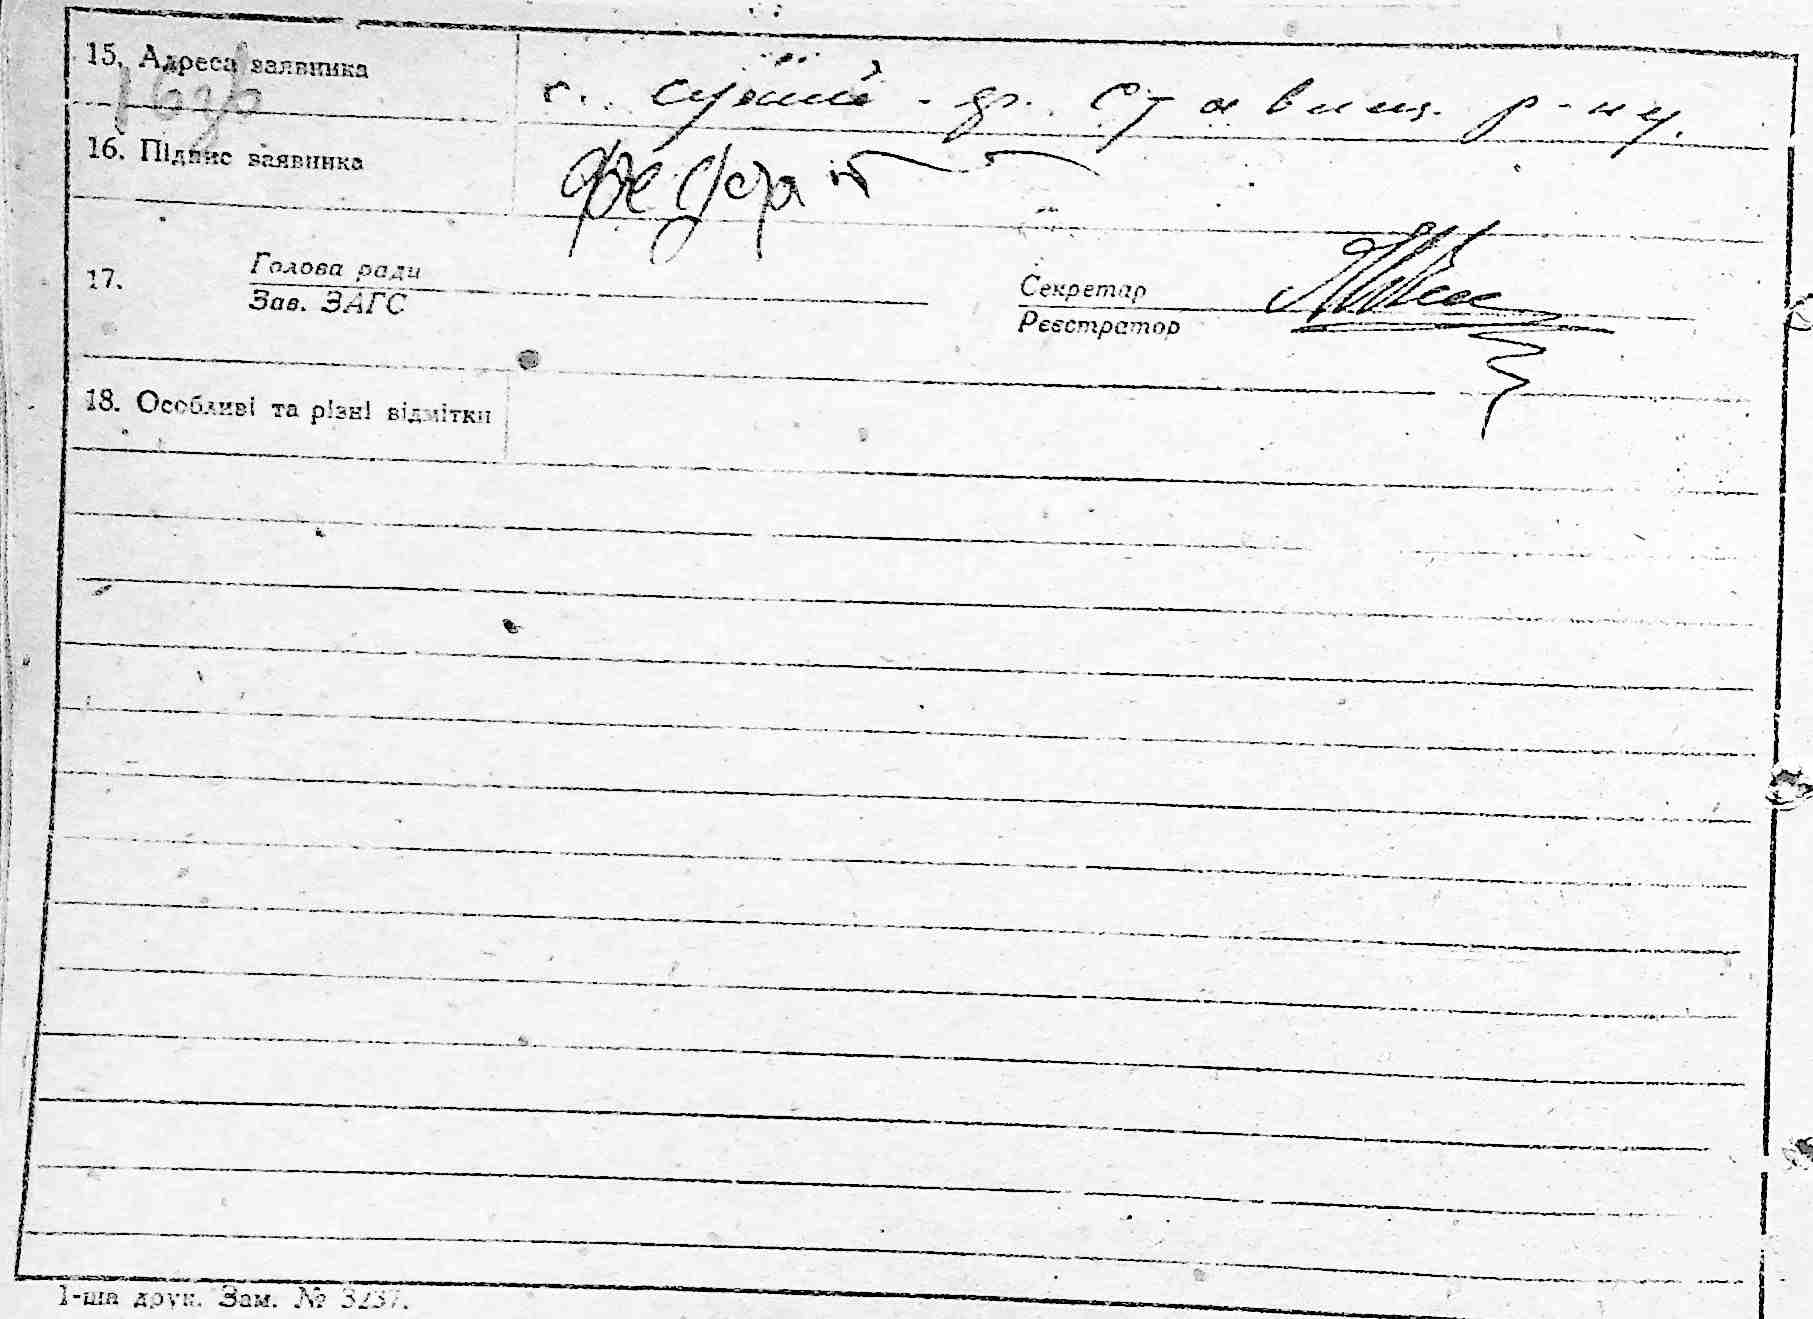 15. Адреса заявника
с. - др. Ставищ. р-ну.
16. Підпис заявника
17. Голова ради
Зав. ЗАГС
Секретар
Реєстратор
18. Особливі та різні відмітки
1-ша друк. Зам. № 3237.